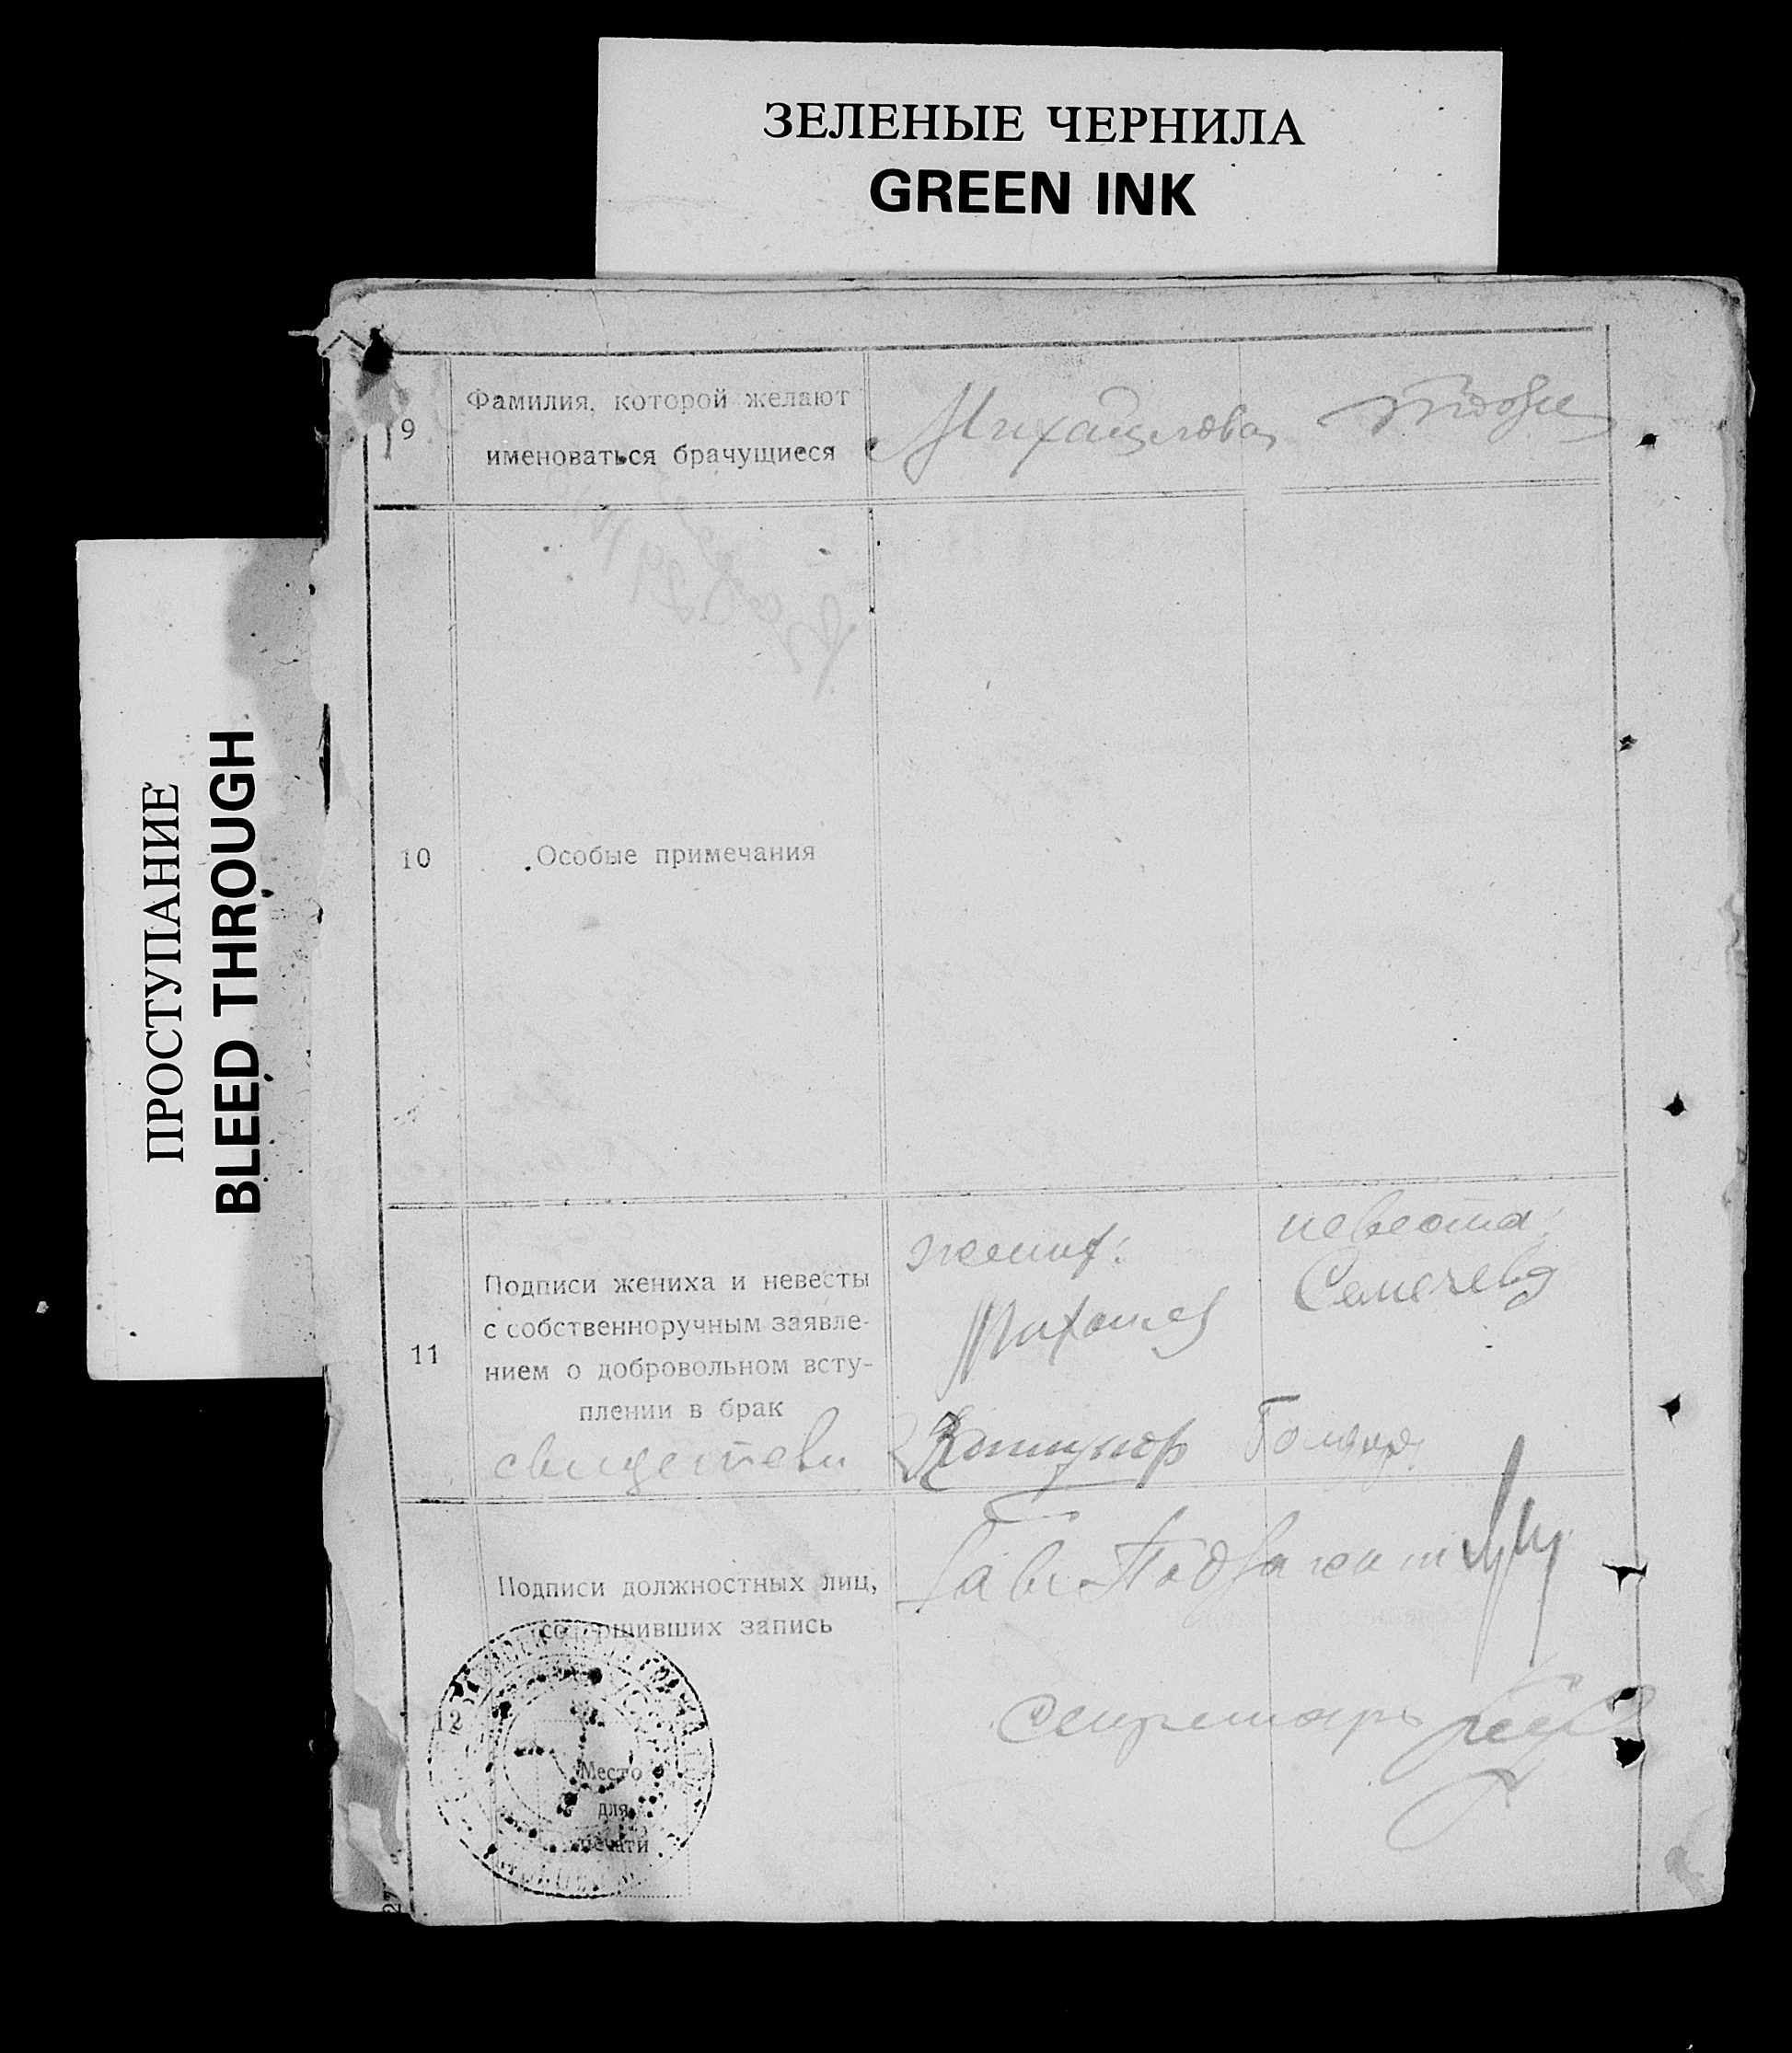 ЗЕЛЕНЫЕ ЧЕРНИЛА
GREEN INK
ПРОСТУПАНИЕ
BLEED THROUGH
9 Фамилия, которой желают
именоваться брачущиеся
Михайлова
10 Особые примечания
11 Подписи жениха и невесты
с собственноручным заявле-
нием о добровольном всту-
плении в брак
свидетели
жених:
невеста:
Семечева
12 Подписи должностных лиц,
совершивших запись
Зав. Подзагсом
секретарь
Место
для
печати